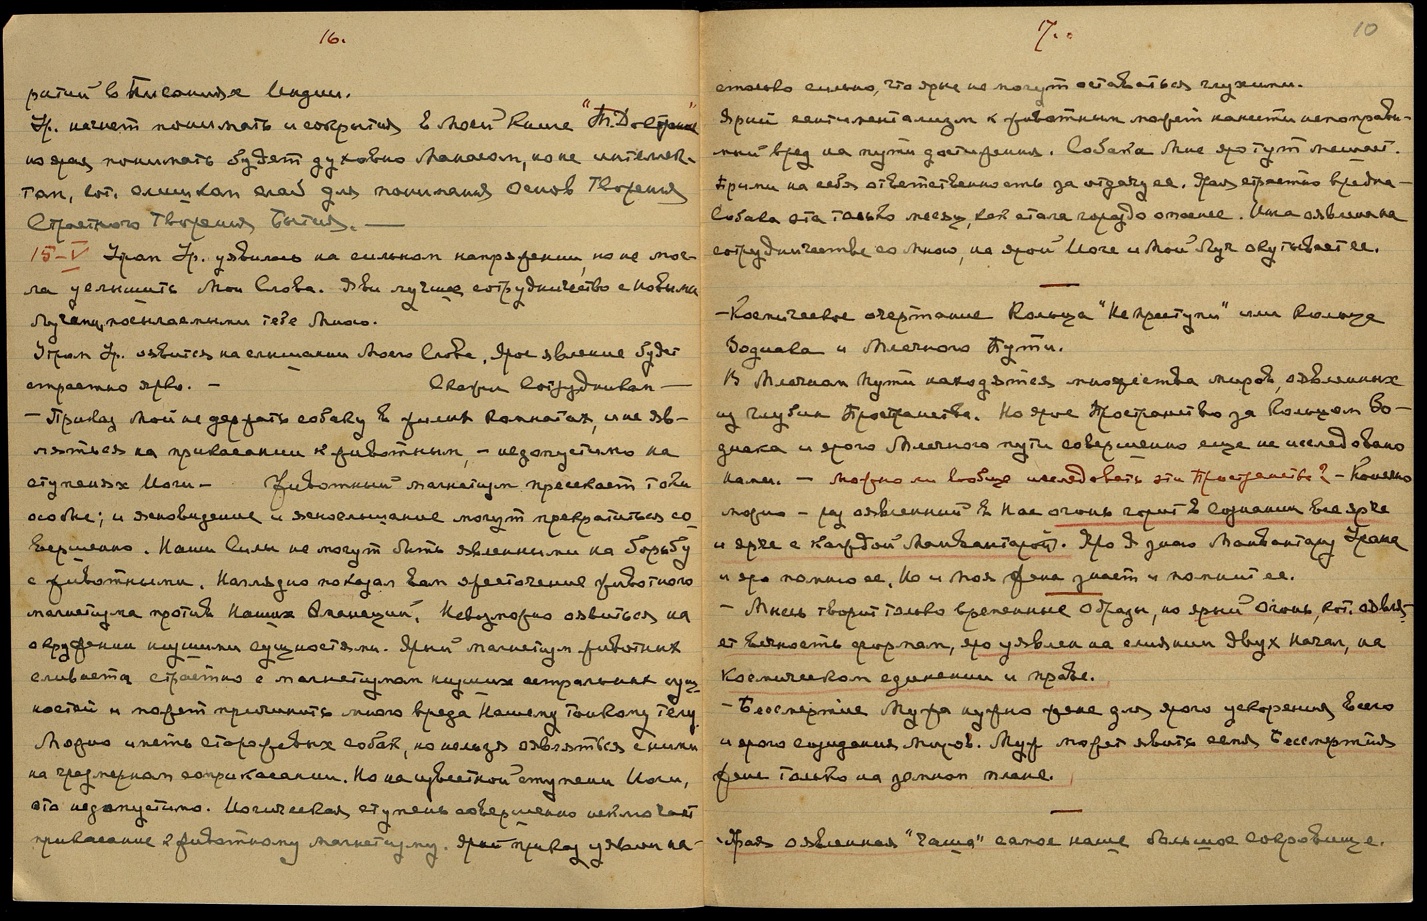 16.
ритий в Писаниях Индии.
Ур. начнет понимать и сокрытия в Моей Книге "Т. Доктрине"
но яро понимать будет духовно Манасом, но не интеллек-
том, кот. слишком слаб для понимания Основ Творения
Страстного Творения Бытия. —
15–V Утром Ур. уявилась на сильном напряжении, но не мог-
ла услышать Мои Слова. Яви лучшее сотрудничество с новыми
Лучами, посылаемыми тебе Мною.
Утром Ур. оявится на слышании Моего Слова. Ярое явление будет
страстно ярко. – Скажи Сотрудникам —
– Приказ Мой не держать собаку в жилых комнатах, и не яв-
ляться на прикасании к животным, – недопустимо на
ступенях Йоги – Животный магнетизм пресекает токи
особые; и ясновидение и яснослышание могут прекратиться со-
вершенно. Наши Силы не могут быть явленными на борьбу
с животными. Наглядно показал вам ожесточение животного
магнетизма против Наших Эманаций. Невозможно оявиться на
окружении низшими сущностями. Ярый магнетизм животных
сливается страстно с магнетизмом низших астральных сущ-
ностей и может причинить много вреда Нашему Тонкому Телу.
Можно иметь сторожевых собак, но нельзя оявляться с ними
на чрезмерном соприкасании. Но на известной ступени Йоги,
это недопустимо. Йогическая ступень совершенно исключает
прикасание к животному магнетизму. Ярый приказ уявлен на-
17.
10
столько сильно, что ярые не могут оставаться глухими.
Ярый сентиментализм к животным может нанести непоправи-
мый вред на пути достижения. Собака Мне яро тут мешает.
Прими на себя ответственность за отдачу ее. Ярая страстно вредна –
Собака эта только месяц, как стала гораздо опаснее. Ина оявлена на
сотрудничестве со Мною, на ярой Йоге и Мой Луч окутывает ее.
– Космическое очертание Кольца "Не Преступи" или Кольца
Зодиака и Млечного Пути.
В Млечном Пути находятся множества миров, оявленных
из глубин Пространства. Но ярое Пространство за Кольцом Зо-
диака и ярого Млечного пути совершенно еще не исследовано
Нами. – Можно ли вообще исследовать эти Пространства? – Конечно
можно – раз оявленный в Нас огонь горит в Сознании все ярче
и ярче с каждой Манвантарой. Яро Я знаю Манвантару Урана
и яро помню ее. Но и Моя Жена знает и помнит ее.
– Мысль творит только временные Образы, но ярый Огонь, кот. оявля-
ет вечность формам, яро уявлен на слиянии Двух Начал, на
Космическом единении и праве.
– Бессмертие Мужа нужно жене для ярого ускорения Всего
и ярого созидания Миров. Муж может явить семя Бессмертия
жене только на земном плане.
– Ярая оявленная "Чаша" самое наше большое сокровище.